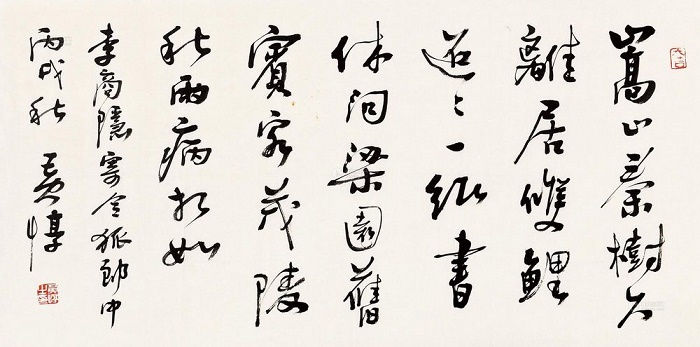 嵩山秦樹久
離居雙鯉
迢〻一紙書
休問梁園舊
賓客茂陵
秋雨病相如
李商隱寄令狐郎中
丙戌秋 黄惇